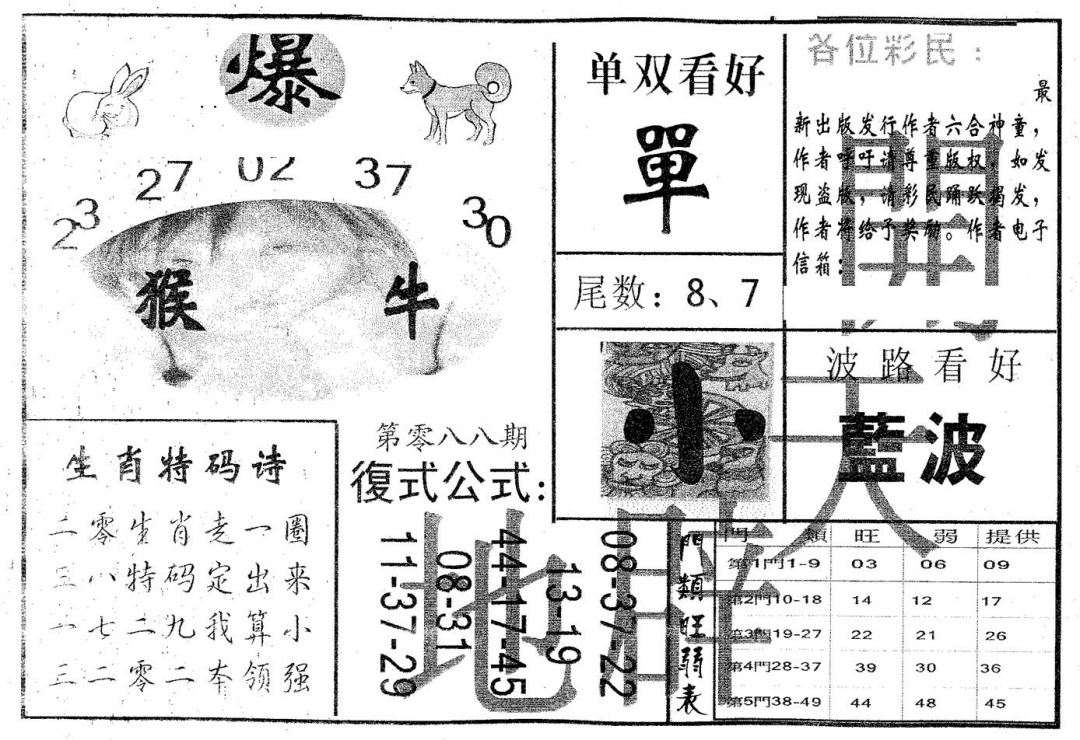 爆
23 27 02 37 30
猴 牛
单双看好
單
尾数：8、7
各位彩民：
最
新出版发行作者六合神童，
作者呼吁请尊重版权，如发
现盗版，请彩民踊跃揭发，
作者将给予奖励。作者电子
信箱：
小
波路看好
藍波
生肖特码诗
二零生肖走一圈
三八特码定出来
一七二九我算小
三二零二本领强
第零八八期
復式公式：
11-37-29
08-31
44-17-45
13-19
08-37-22
門類旺弱表
門類 旺 弱 提供
第1門1-9 03 06 09
第2門10-18 14 12 17
第3門19-27 22 21 26
第4門28-37 39 30 36
第5門38-49 44 48 45
天
地